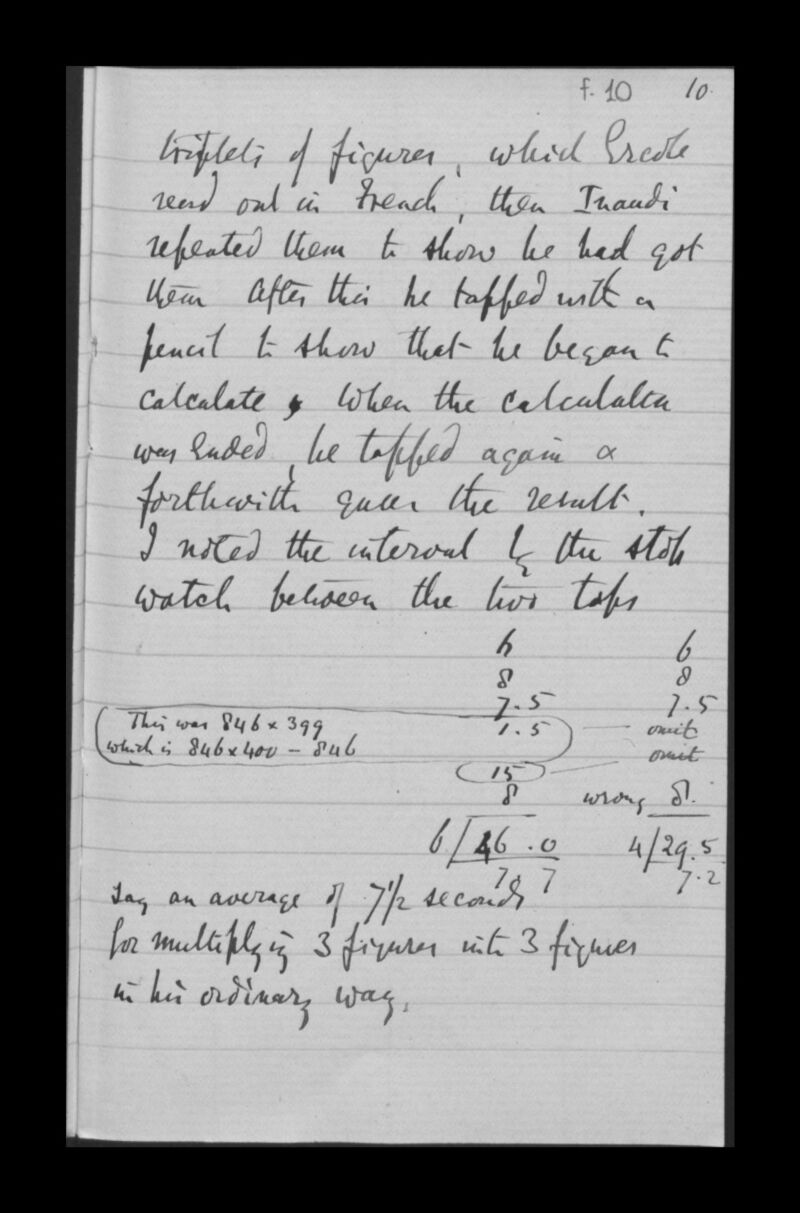 f. 10 10.
triplets of figures, which Ercole
read out in French, then Inaudi
repeated them to show he had got
them After this he tapped with a
pencil to show that he began to
calculate, when the calculation
was ended, he tapped again &
forthwith gave the result.
I noted the interval by the stop
watch between the two taps
6 6
8 8
7.5 7.5
This was 846 x 399 1.5 omit
which is 846 x 400 – 846 omit
15
8 wrong 8.
6/46.0 4/29.5
7.7 7.2
say an average of 7 1/2 seconds
for multiplying 3 figures into 3 figures
in his ordinary way.